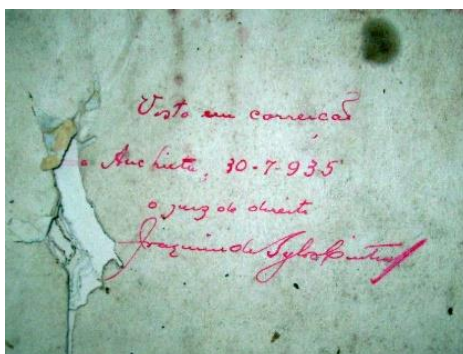 Visto em correição
Anchieta, 30-7-935
o juiz de direito
Joaquim de Sylos Cintra